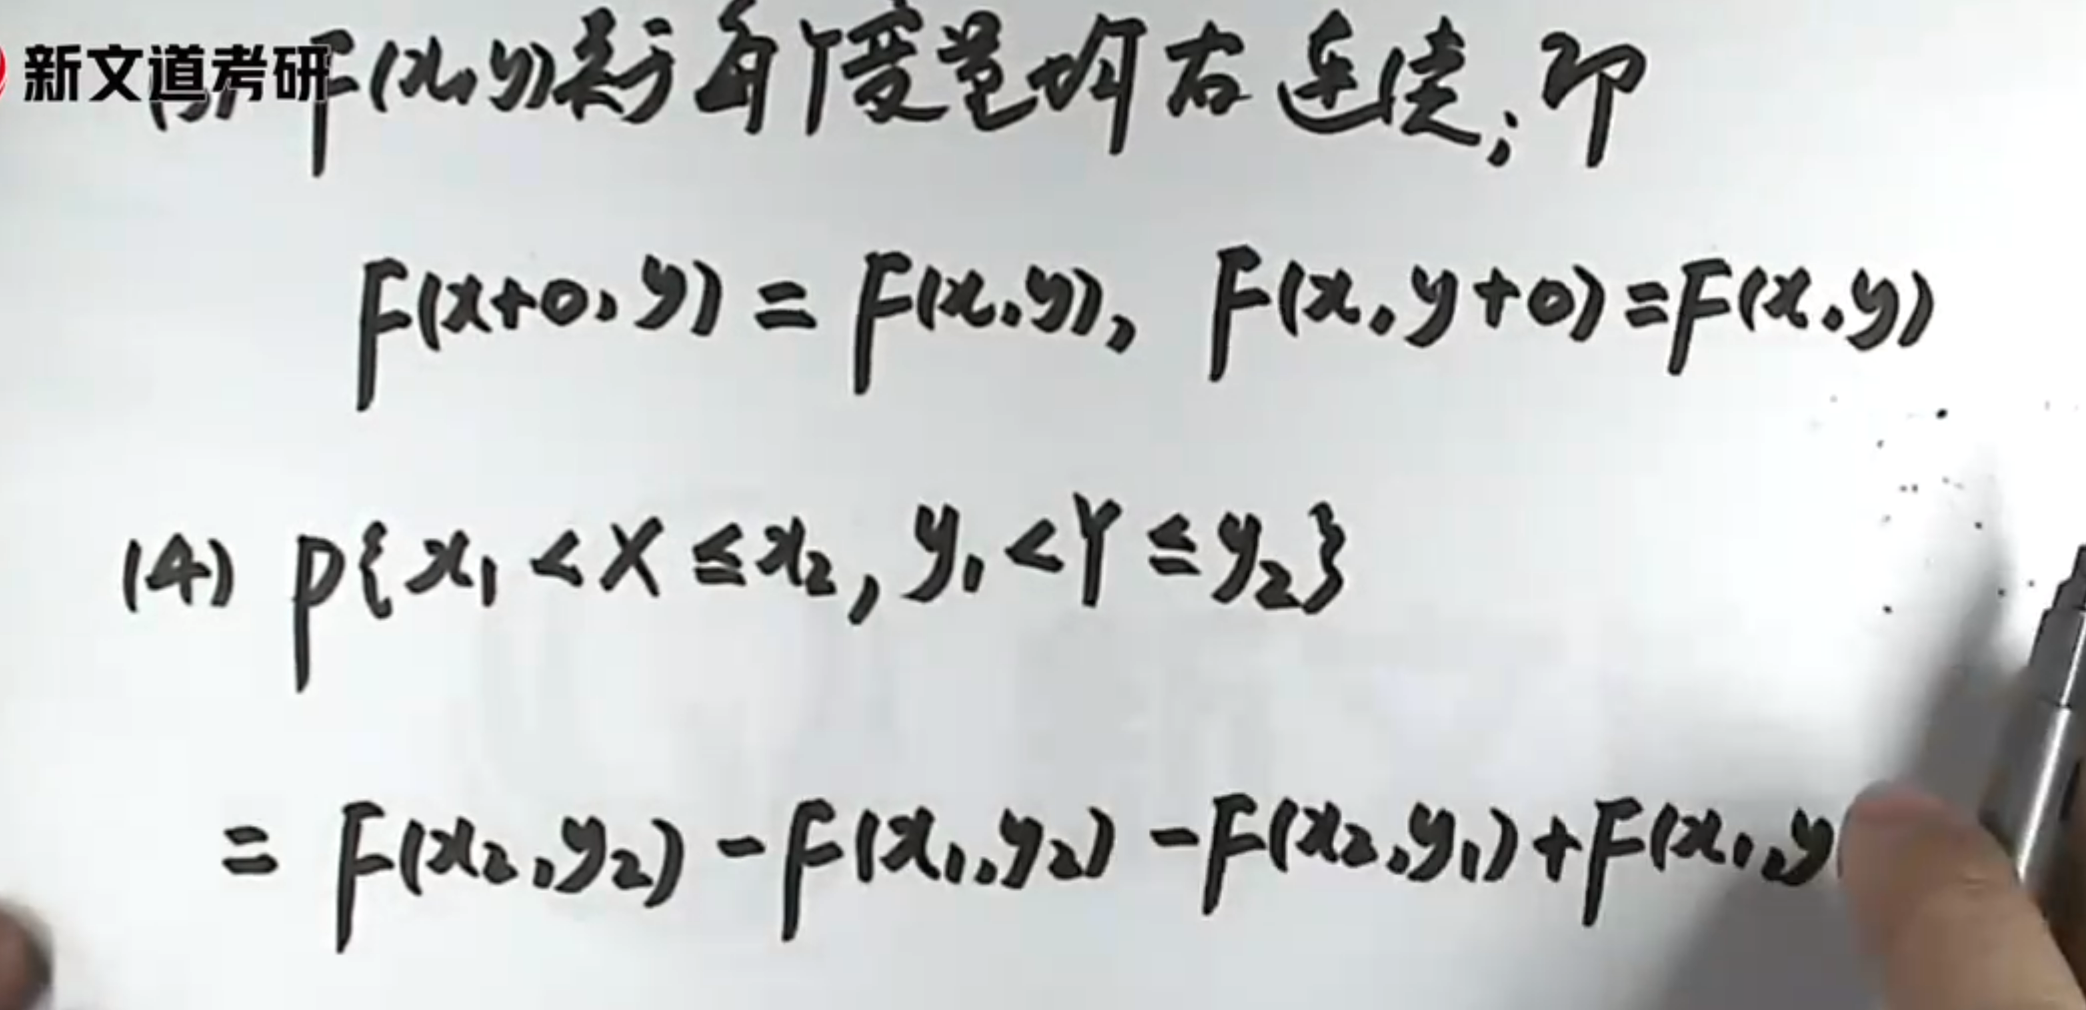 新文道考研
(3) F(x,y)关于每个变量均右连续;即
F(x+0,y)=F(x,y), F(x,y+0)=F(x,y)
(4) P{x₁<X≤x₂,y₁<Y≤y₂}
=F(x₂,y₂)-F(x₁,y₂)-F(x₂,y₁)+F(x₁,y